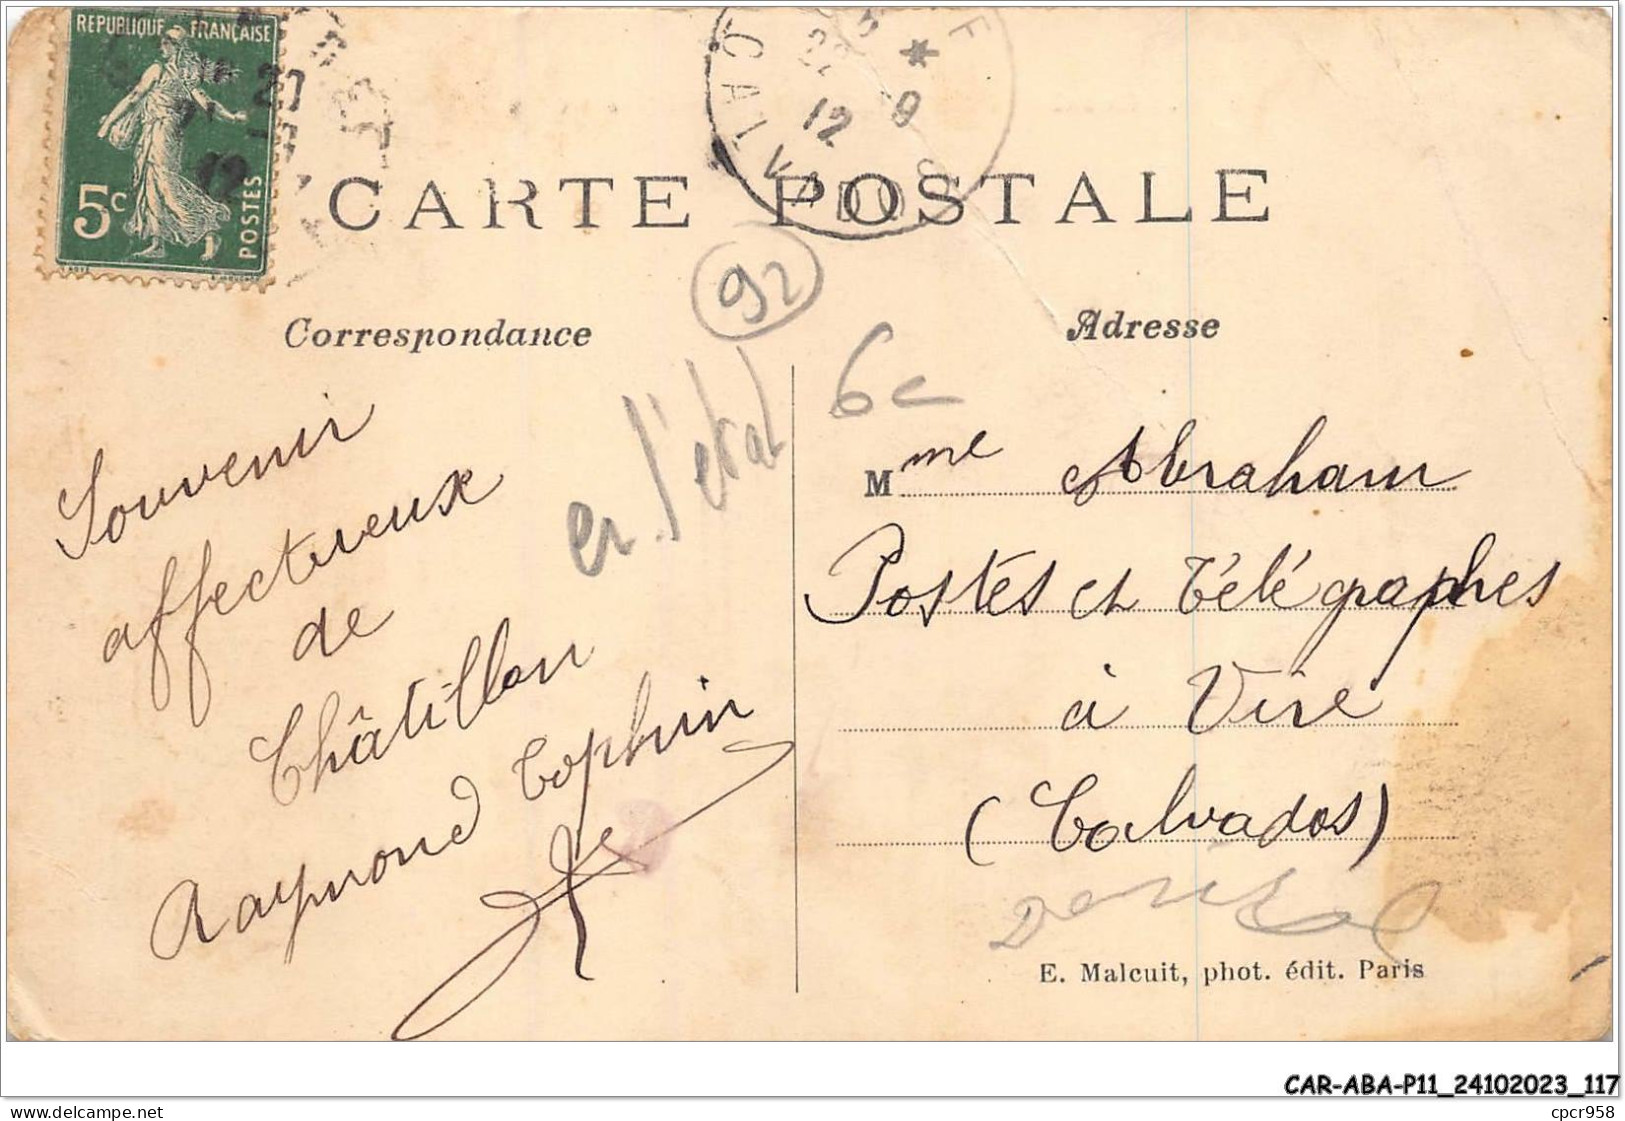 REPUBLIQUE FRANÇAISE
5c
POSTES
CALVADOS
12
CARTE POSTALE
92
Correspondance
Adresse
6c
en l'état
Souvenir
affectueux
de
Châtillon
Raymond Tophin
Mme Abraham
Postes et Télégraphes
à Vire
(Calvados)
E. Malcuit, phot. édit. Paris
CAR-ABA-P11_24102023_117
www.delcampe.net
cpcr958